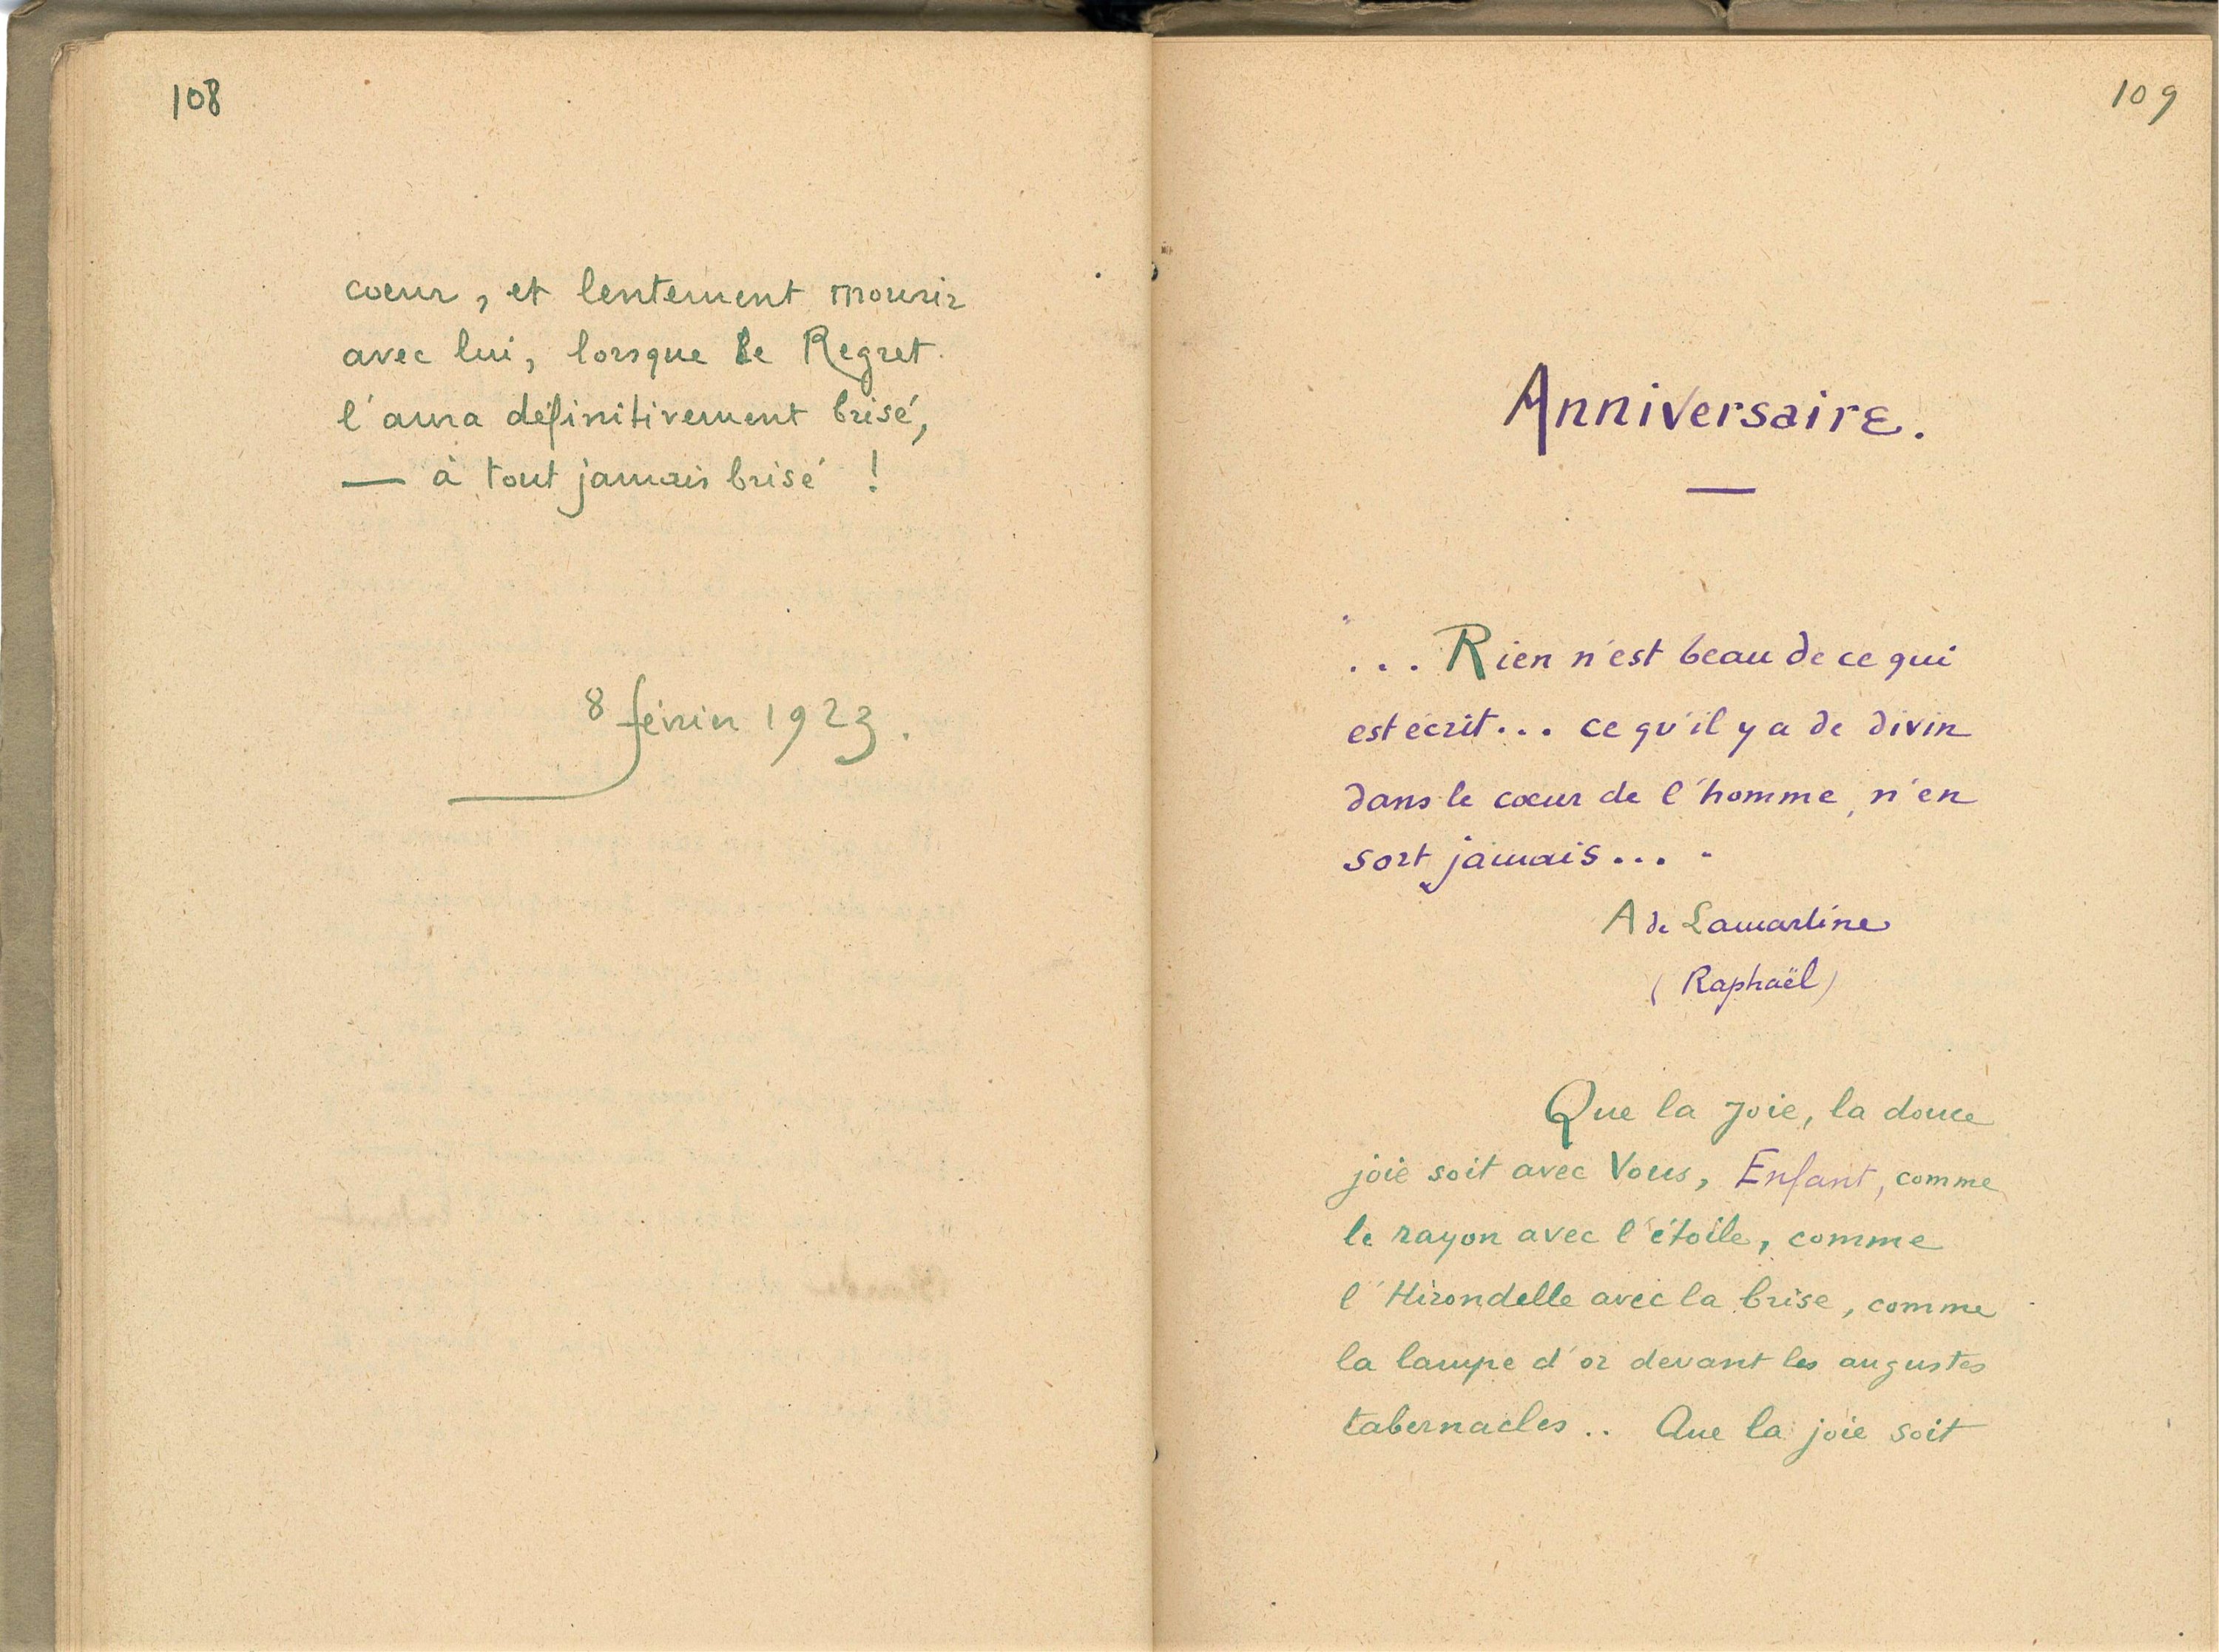 108
coeur, et lentement mourir
avec lui, lorsque le Regret
l'aura définitivement brisé,
— à tout jamais brisé !
8 février 1923.
109
Anniversaire.
"
... Rien n'est beau de ce qui
est écrit... ce qu'il y a de divin
dans le cœur de l'homme, n'en
sort jamais... "
A de Lamartine
(Raphaël)
Que la Joie, la douce
joie soit avec Vous, Enfant, comme
le rayon avec l'étoile, comme
l'Hirondelle avec la brise, comme
la lampe d'or devant les augustes
tabernacles.. Que la joie soit